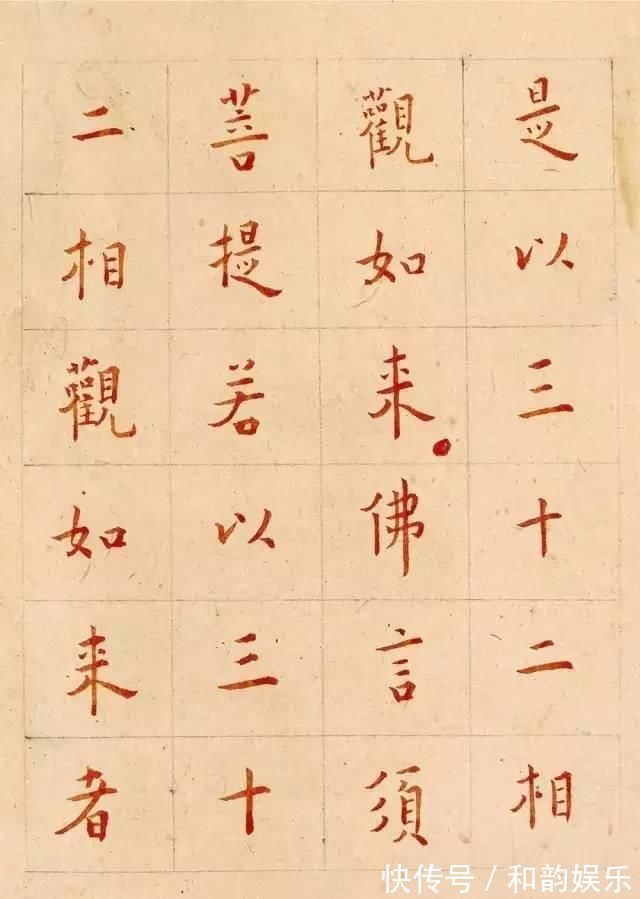 是以三十二相
觀如来佛言須
菩提若以三十
二相觀如来者
快传号/和韵娱乐